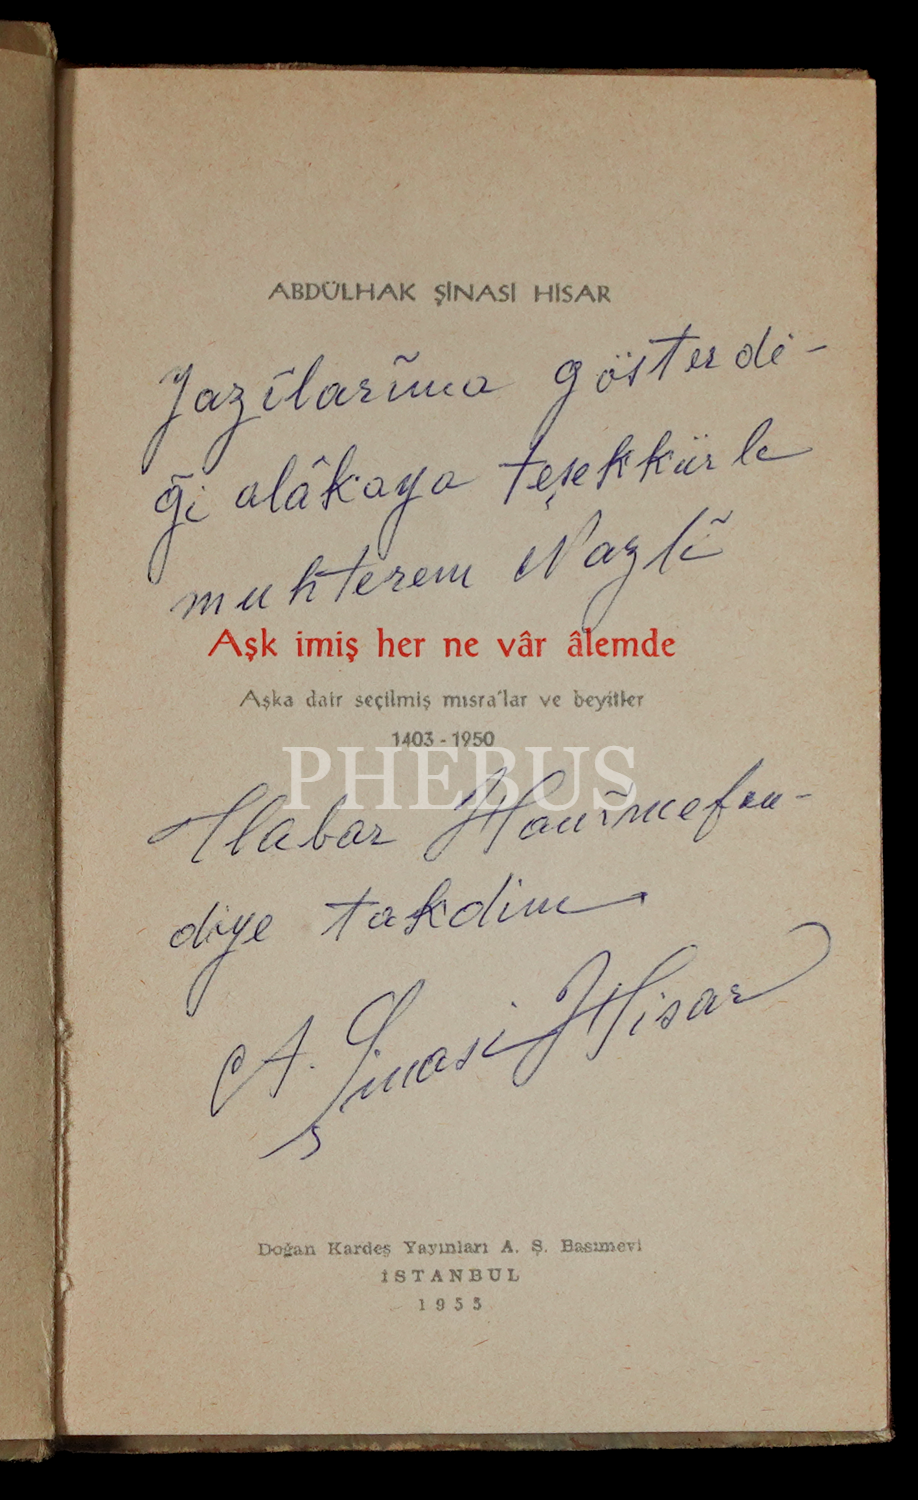 ABDÜLHAK ŞİNASİ HİSAR
Yazılarıma gösterdi-
ği alâkaya teşekkürle
muhterem Nazlı
Aşk imiş her ne vâr âlemde
Aşka dair seçilmiş mısra'lar ve beyitler
1403 - 1950
PHEBUS
Hanımefen-
diye takdim
A. Şinasi Hisar
Doğan Kardeş Yayınları A. Ş. Basımevi
İSTANBUL
1955